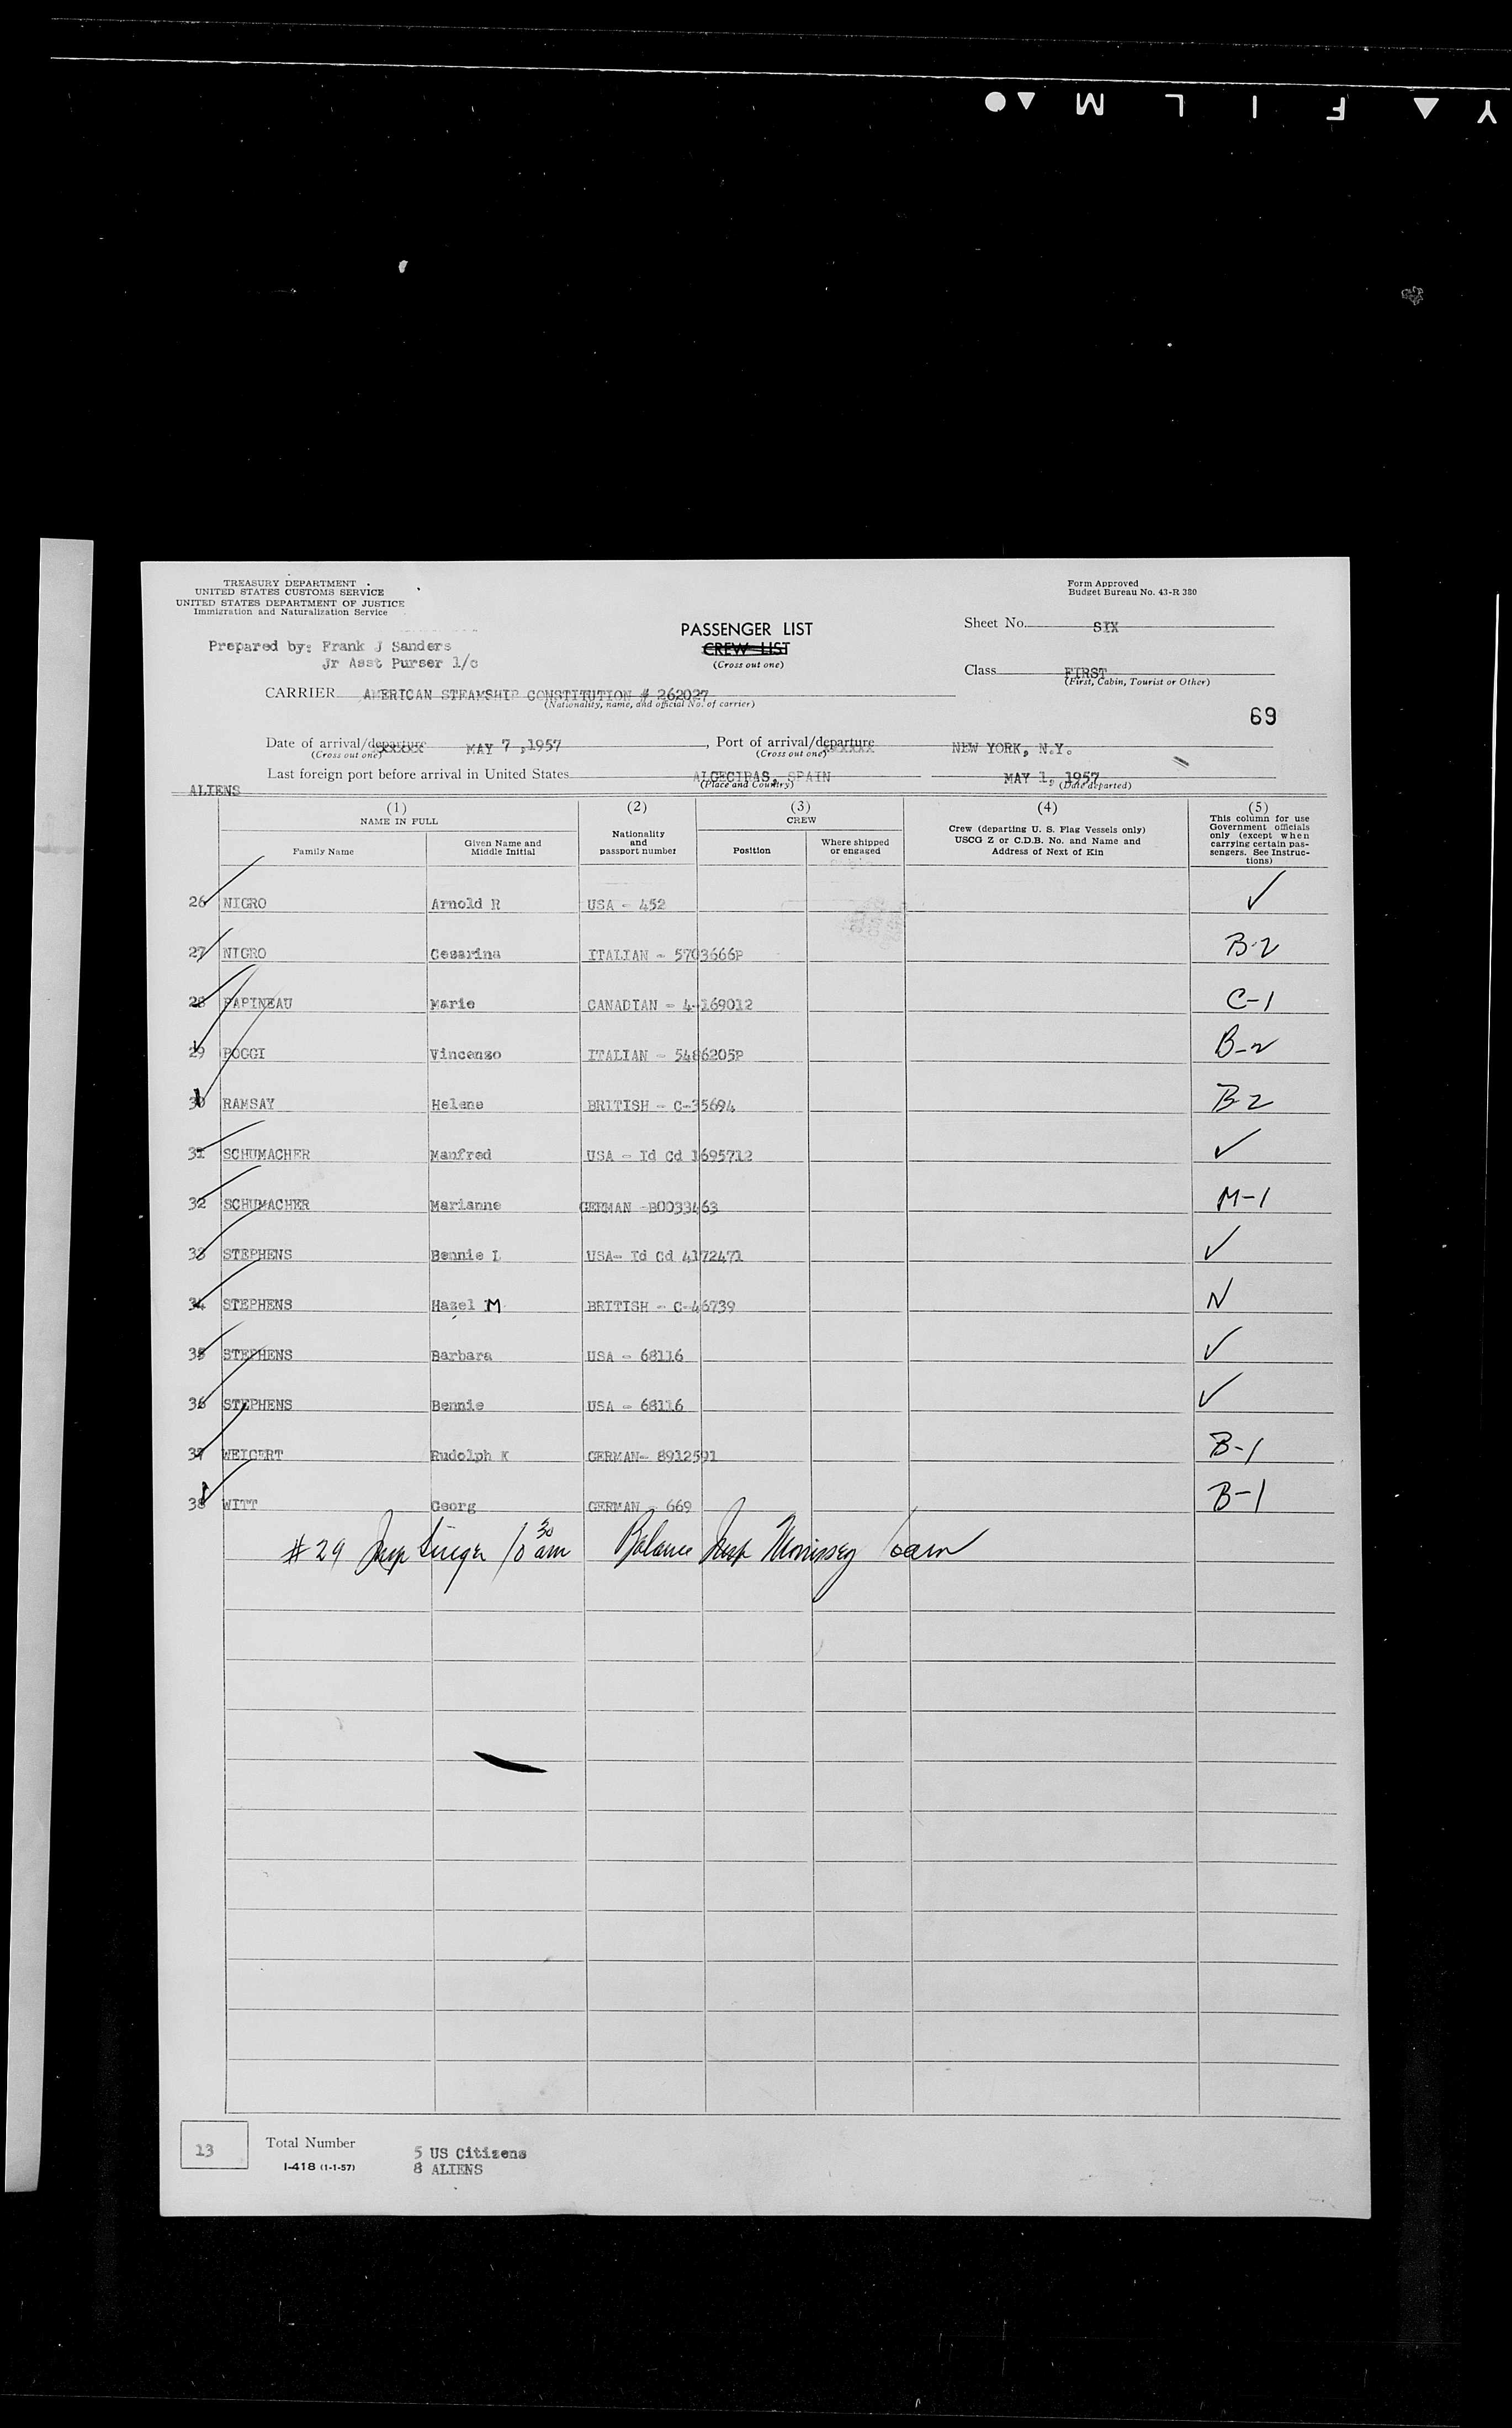 Y ▲ F I L M ▲ ●
TREASURY DEPARTMENT
UNITED STATES CUSTOMS SERVICE
UNITED STATES DEPARTMENT OF JUSTICE
Immigration and Naturalization Service
Form Approved
Budget Bureau No. 43-R 380
Prepared by: Frank J Sanders
Jr Asst Purser 1/c
PASSENGER LIST
CREW LIST
(Cross out one)
Sheet No. SIX
Class FIRST
(First, Cabin, Tourist or Other)
CARRIER AMERICAN STEAMSHIP CONSTITUTION # 262027
(Nationality, name, and official No. of carrier)
69
Date of arrival/departure MAY 7, 1957, Port of arrival/departure NEW YORK, N.Y.
(Cross out one) (Cross out one)
Last foreign port before arrival in United States ALGECIRAS, SPAIN MAY 1, 1957
(Place and Country) (Date departed)
ALIENS
(1) (2) (3) (4) (5)
NAME IN FULL
Family Name
Given Name and
Middle Initial
Nationality
and
passport number
CREW
Position
Where shipped
or engaged
Crew (departing U. S. Flag Vessels only)
USCG Z or C.D.B. No. and Name and
Address of Next of Kin
This column for use
Government officials
only (except when
carrying certain pas-
sengers. See Instruc-
tions)
26 NIGRO Arnold R USA - 452 ✓
27 NIGRO Cesarina ITALIAN - 5703666P B-2
28 PAPINEAU Marie CANADIAN - 4-169012 C-1
29 POGGI Vincenzo ITALIAN - 5486205P B-2
30 RAMSAY Helene BRITISH - C-35694 B-2
31 SCHUMACHER Manfred USA - Id Cd 1695712 ✓
32 SCHUMACHER Marianne GERMAN -B0033463 M-1
33 STEPHENS Bennie L USA- Id Cd 4172471 ✓
34 STEPHENS Hazel M BRITISH - C-46739 N
35 STEPHENS Barbara USA - 68116 ✓
36 STEPHENS Bennie USA - 68116 ✓
37 WEIGERT Rudolph K GERMAN- 8912591 B-1
38 WITT Georg GERMAN - 669 B-1
#29 Insp Singer 10 30 am Balance Insp Morrissey 10am
13
Total Number
I-418 (1-1-57)
5 US Citizens
8 ALIENS